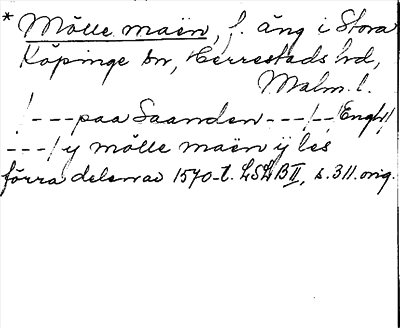 * Mölle maën, f. äng i Stora
Köpinge sn, Herrestads hd,
Malm. l.
/---paa Saanden---/--/Engh/
---/ y mölle maën ÿ les
förra delen av 1570-t. LSLB II, s. 311. orig.